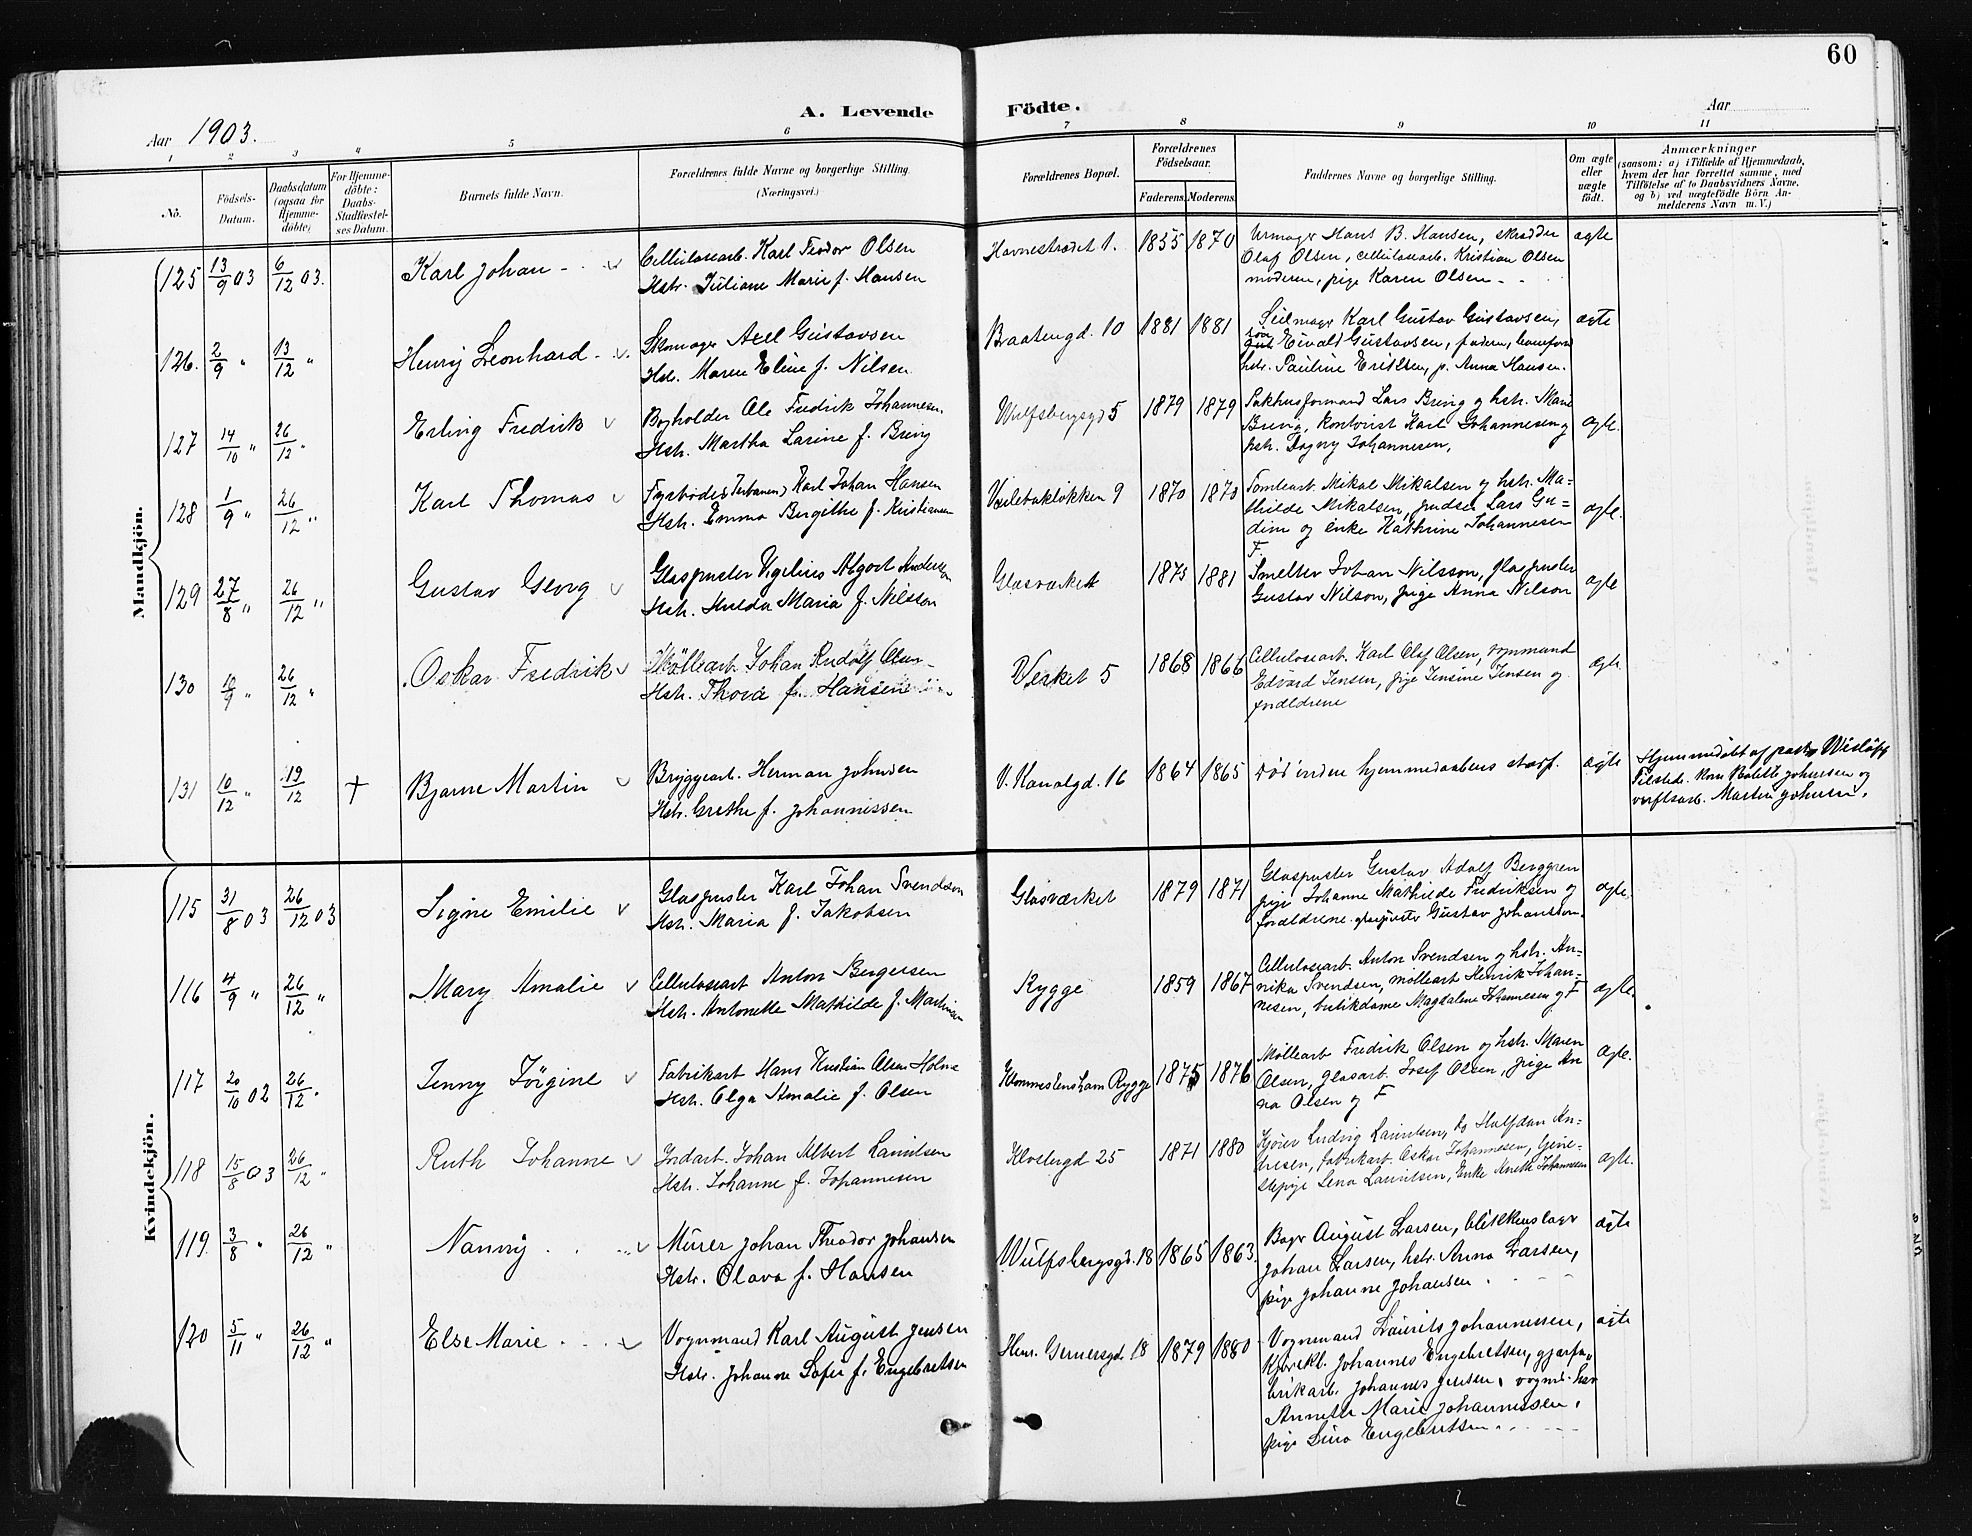 60
A. Levende Födte.
Aar 1903.
Aar
1 2 3 4 5 6 7 8 9 10 11
No.
Födsels-Datum.
Daabsdatum (ogsaa for Hjemme-döbte)
For Hjemme-döbte: Daabs-Stadfæstel-ses Datum.
Barnets fulde Navn.
Forældrenes fulde Navne og borgerlige Stilling. (Næringsvei.)
Forældrenes Bopæl.
Forældrenes Födselsaar.
Faderens. Moderens.
Faddernes Navne og borgerlige Stilling.
Om ægte eller uægte født.
Anmærkninger
(saasom: a) i Tilfælde af Hjemmedaab,
hvem der har forrettet samme, med
Tilføielse af to Daabsvidners Navne,
og b) ved uægtefödte Börn An-
melderens Navn m. V.)
Mandkjön.
125 13/9 03 6/12 03. Karl Johan
Cellulosearb. Karl Teodor Olsen
Hstr. Juliane Marie f. Hansen
Havnestrædet 1. 1855 1870
Urmager Hans B. Hansen, skrædder
Olaf Olsen, cellulosearb. Kristian Olsen
moderen, pige Karen Olsen
ægte
126. 2/9 " 13/12 " Henry Leonhard
Skomager Axel Gustavsen
Hstr. Maren Eline f. Nilsen
Braatengd. 10 1881 1881
Seilmager Karl Gustav Gustavsen,
Eivald Gustavsen, faderen,
hstr. Pauline Eriksen, p. Anna Hansen.
ægte
127 14/10 " 26/12 " Erling Fredrik
Bogholder Ole Fredrik Johannesen
Hstr. Martha Larine f. Breng
Wulfsbergsgd 5 1879 1879
Pakhusformand Lars Breng og hstr. Marie
Breng, kontorist Karl Johannesen og
hstr. Dagny Johannesen,
ægte.
128 1/9 " 26/12 " Karl Thomas
Fyrbøder (Jernbanen) Karl Johan Hansen
Hstr. Emma Birgithe f. Kristiansen
Værlebakløkken 9 1870 1870
Tomtearb. Mikal Mikalsen og hstr. Ma-
thilde Mikalsen, Lars Gu-
dim og Enke Kathrine Johannesen
F.
ægte.
129 27/8 " 26/12 " Gustav Georg
Glaspuster Vigelius Algot Andersson
Hstr. Hulda Maria f. Nilsson
Glasværket 1875 1881
Smelter Johan Nilsson, glaspuster
Gustav Nilson, pige Anna Nilson
ægte
130 10/9 " 26/12 " Oskar Fredrik
Møllearb. Johan Rudolf Olsen
Hstr. Thora f. Hansen
Værket 5 1868 1866
Cellulosearb. Karl Olaf Olsen, vognmand
Edvard Jensen, pige Jensine Jensen og
forældrene
ægte
131 10/12 " 19/12 † Bjarne Martin
Bryggearb. Herman Johnsen
Hstr. Grethe f. Johannissen
V. Kanalgd. 16 1864 1865
Død inden hjemmedaabens stadf.
ægte
Hjemmedøbt af pastor Wisløff
Tilstede. Kone Bolette Johnsen og
verftsarb. Martin Johnsen.
Kvindekjön.
115 31/8 03 26/12 03 Signe Emilie
Glaspuster Karl Johan Svendsen
Hstr. Maria f. Jakobsen
Glasværket 1879 1871
Glaspuster Gustav Adolf Berggren
pige Johanne Mathilde Fredriksen og
forældrene. glaspuster Gustav Johansson.
ægte.
116 4/9 " 26/12 " Mary Amalie
Cellulosearb Anton Bergersen
Hstr. Antonette Mathilde f. Martinsen
Rygge 1859 1867
Cellulosearb. Anton Svendsen og hstr. An-
nika Svendsen, møllearb Henrik Johan-
nesen, butikdame Magdalene Johannesen og F
ægte.
117 20/10 02 26/12 " Jenny Jörgine
Fabrikarb Hans Kristian Olsen Holme
Hstr. Olga Amalie f. Olsen
Kommestensham Rygge 1875 1876
Møllearb Fredrik Olsen og hstr. Maren
Olsen, glasarb. Josef Olsen, pige An
na Olsen og F
ægte.
118 15/8 03 26/12 " Ruth Johanne
Jordarb. Johan Albert Lauritsen
Hstr. Johanne f. Johannesen
Klostergd 25 1871 1880
Kjører Ludvig Lauritsen, do Halfdan An-
dresen, fabrikarb. Oskar Johannesen, tjene-
stepige Lena Lauritsen, Enke Anette Johannesen
ægte.
119. 3/8 " 26/12 " Nanny
Murer Johan Theodor Johansen
Hstr. Olava f. Hansen
Wulfsbergsgd. 18 1865 1863.
Bager August Larsen, blikkenslager
Johan Larsen, hstr. Anna Larsen,
pige Johanne Johansen.
ægte
120 5/11 " 26/12 " Else Marie
Vognmand Karl August Jensen
Hstr. Johanne Sofie f. Engebretsen
Henr. Gernersgd. 18 1879 1880
Vognmand Laurits Johannessen,
Johannes Engebretsen,
brikarb. Johannes Jensen, vognm. hstr
Annette Marie Johannessen,
pige Lina Engebretsen.
ægte